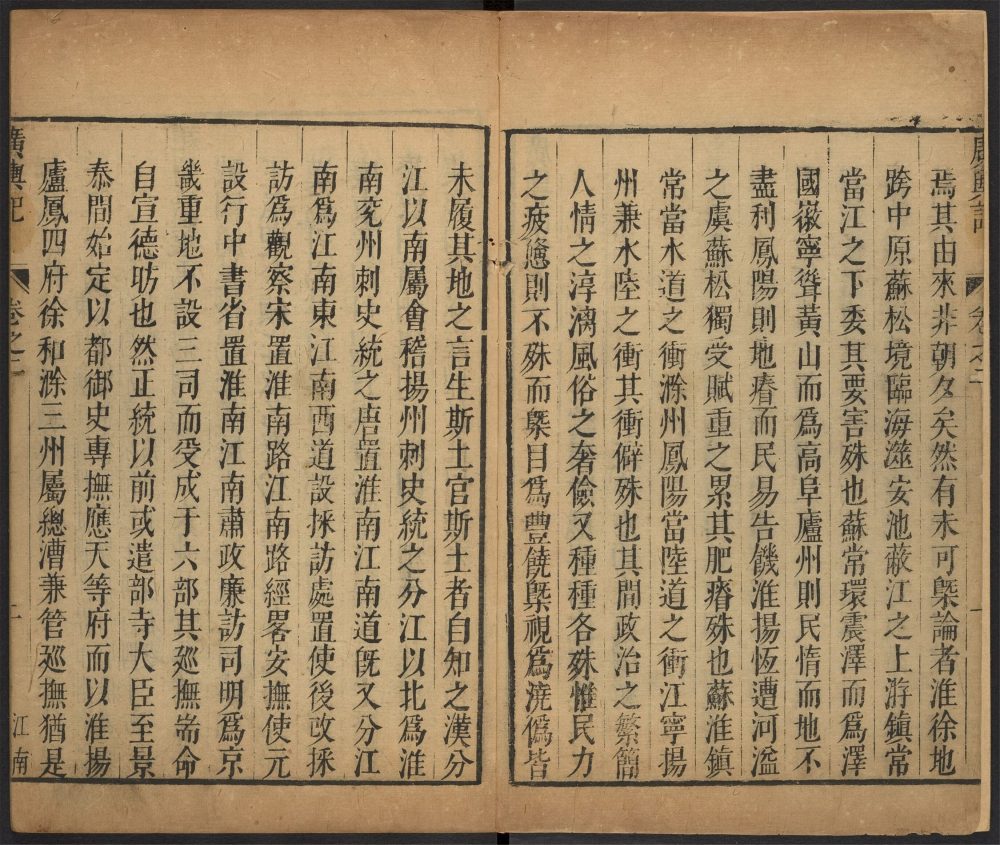 廣輿記
卷之二
一
焉其由來非朝夕矣然有未可槩論者淮徐地
跨中原蘇松境臨海澨安池蔽江之上游鎮常
當江之下委其要害殊也蘇常環震澤而爲澤
國徽寧聳黃山而爲高阜廬州則民惰而地不
盡利鳳陽則地瘠而民易告饑淮揚恆遭河溢
之虞蘇松獨受賦重之累其肥瘠殊也蘇淮鎮
常當水道之衝滁州鳳陽當陸道之衝江寧揚
州兼水陸之衝其衝僻殊也其間政治之繁簡
人情之淳漓風俗之奢儉又種種各殊惟民力
之疲憊則不殊而槩目爲豐饒槩視爲澆僞皆
未履其地之言生斯土官斯土者自知之漢分
江以南屬會稽揚州刺史統之分江以北爲淮
南兖州刺史統之唐置淮南江南道旣又分江
南爲江南東江南西道設採訪處置使後改採
訪爲觀察宋置淮南路江南路經畧安撫使元
設行中書省置淮南江南肅政廉訪司明爲京
畿重地不設三司而受成于六部其廵撫耑命
自宣德昉也然正統以前或遣部寺大臣至景
泰間始定以都御史專撫應天等府而以淮揚
廬鳳四府徐和滁三州屬總漕兼管廵撫猶是
廣輿記
卷之二
一
江南